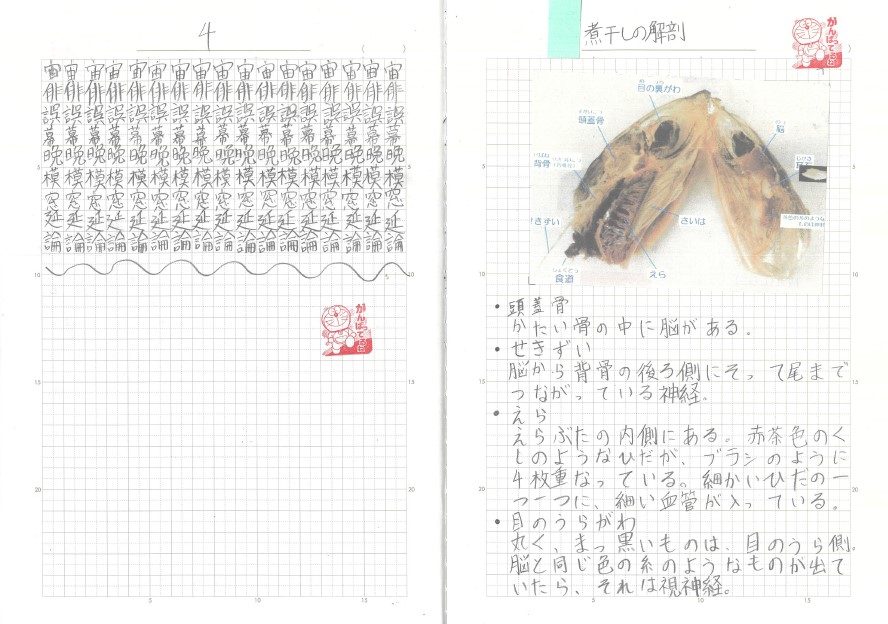 4
宙宙宙宙宙宙宙宙宙宙宙宙宙宙宙宙宙
俳俳俳俳俳俳俳俳俳俳俳俳俳俳俳俳俳
誤誤誤誤誤誤誤誤誤誤誤誤誤誤誤誤誤
幕幕幕幕幕幕幕幕幕幕幕幕幕幕幕幕幕
晩晩晩晩晩晩晩晩晩晩晩晩晩晩晩晩晩
模模模模模模模模模模模模模模模模模
窓窓窓窓窓窓窓窓窓窓窓窓窓窓窓窓窓
延延延延延延延延延延延延延延延延延
論論論論論論論論論論論論論論論論論
がんばってるね
5
10
15
20
5
10
15
煮干しの解剖
がんばってるね
目の裏がわ
頭蓋骨
脳
背骨
せきずい
さいは
えら
食道
・頭蓋骨
かたい骨の中に脳がある。
・せきずい
脳から背骨の後ろ側にそって尾まで
つながっている神経。
・えら
えらぶたの内側にある。赤茶色のく
しのようなひだが、ブラシのように
4枚重なっている。細かいひだの一
つ一つに、細い血管が入っている。
・目のうらがわ
丸く、まっ黒いものは、目のうら側。
脳と同じ色の糸のようなものが出て
いたら、それは視神経。
5
10
15
20
5
10
15